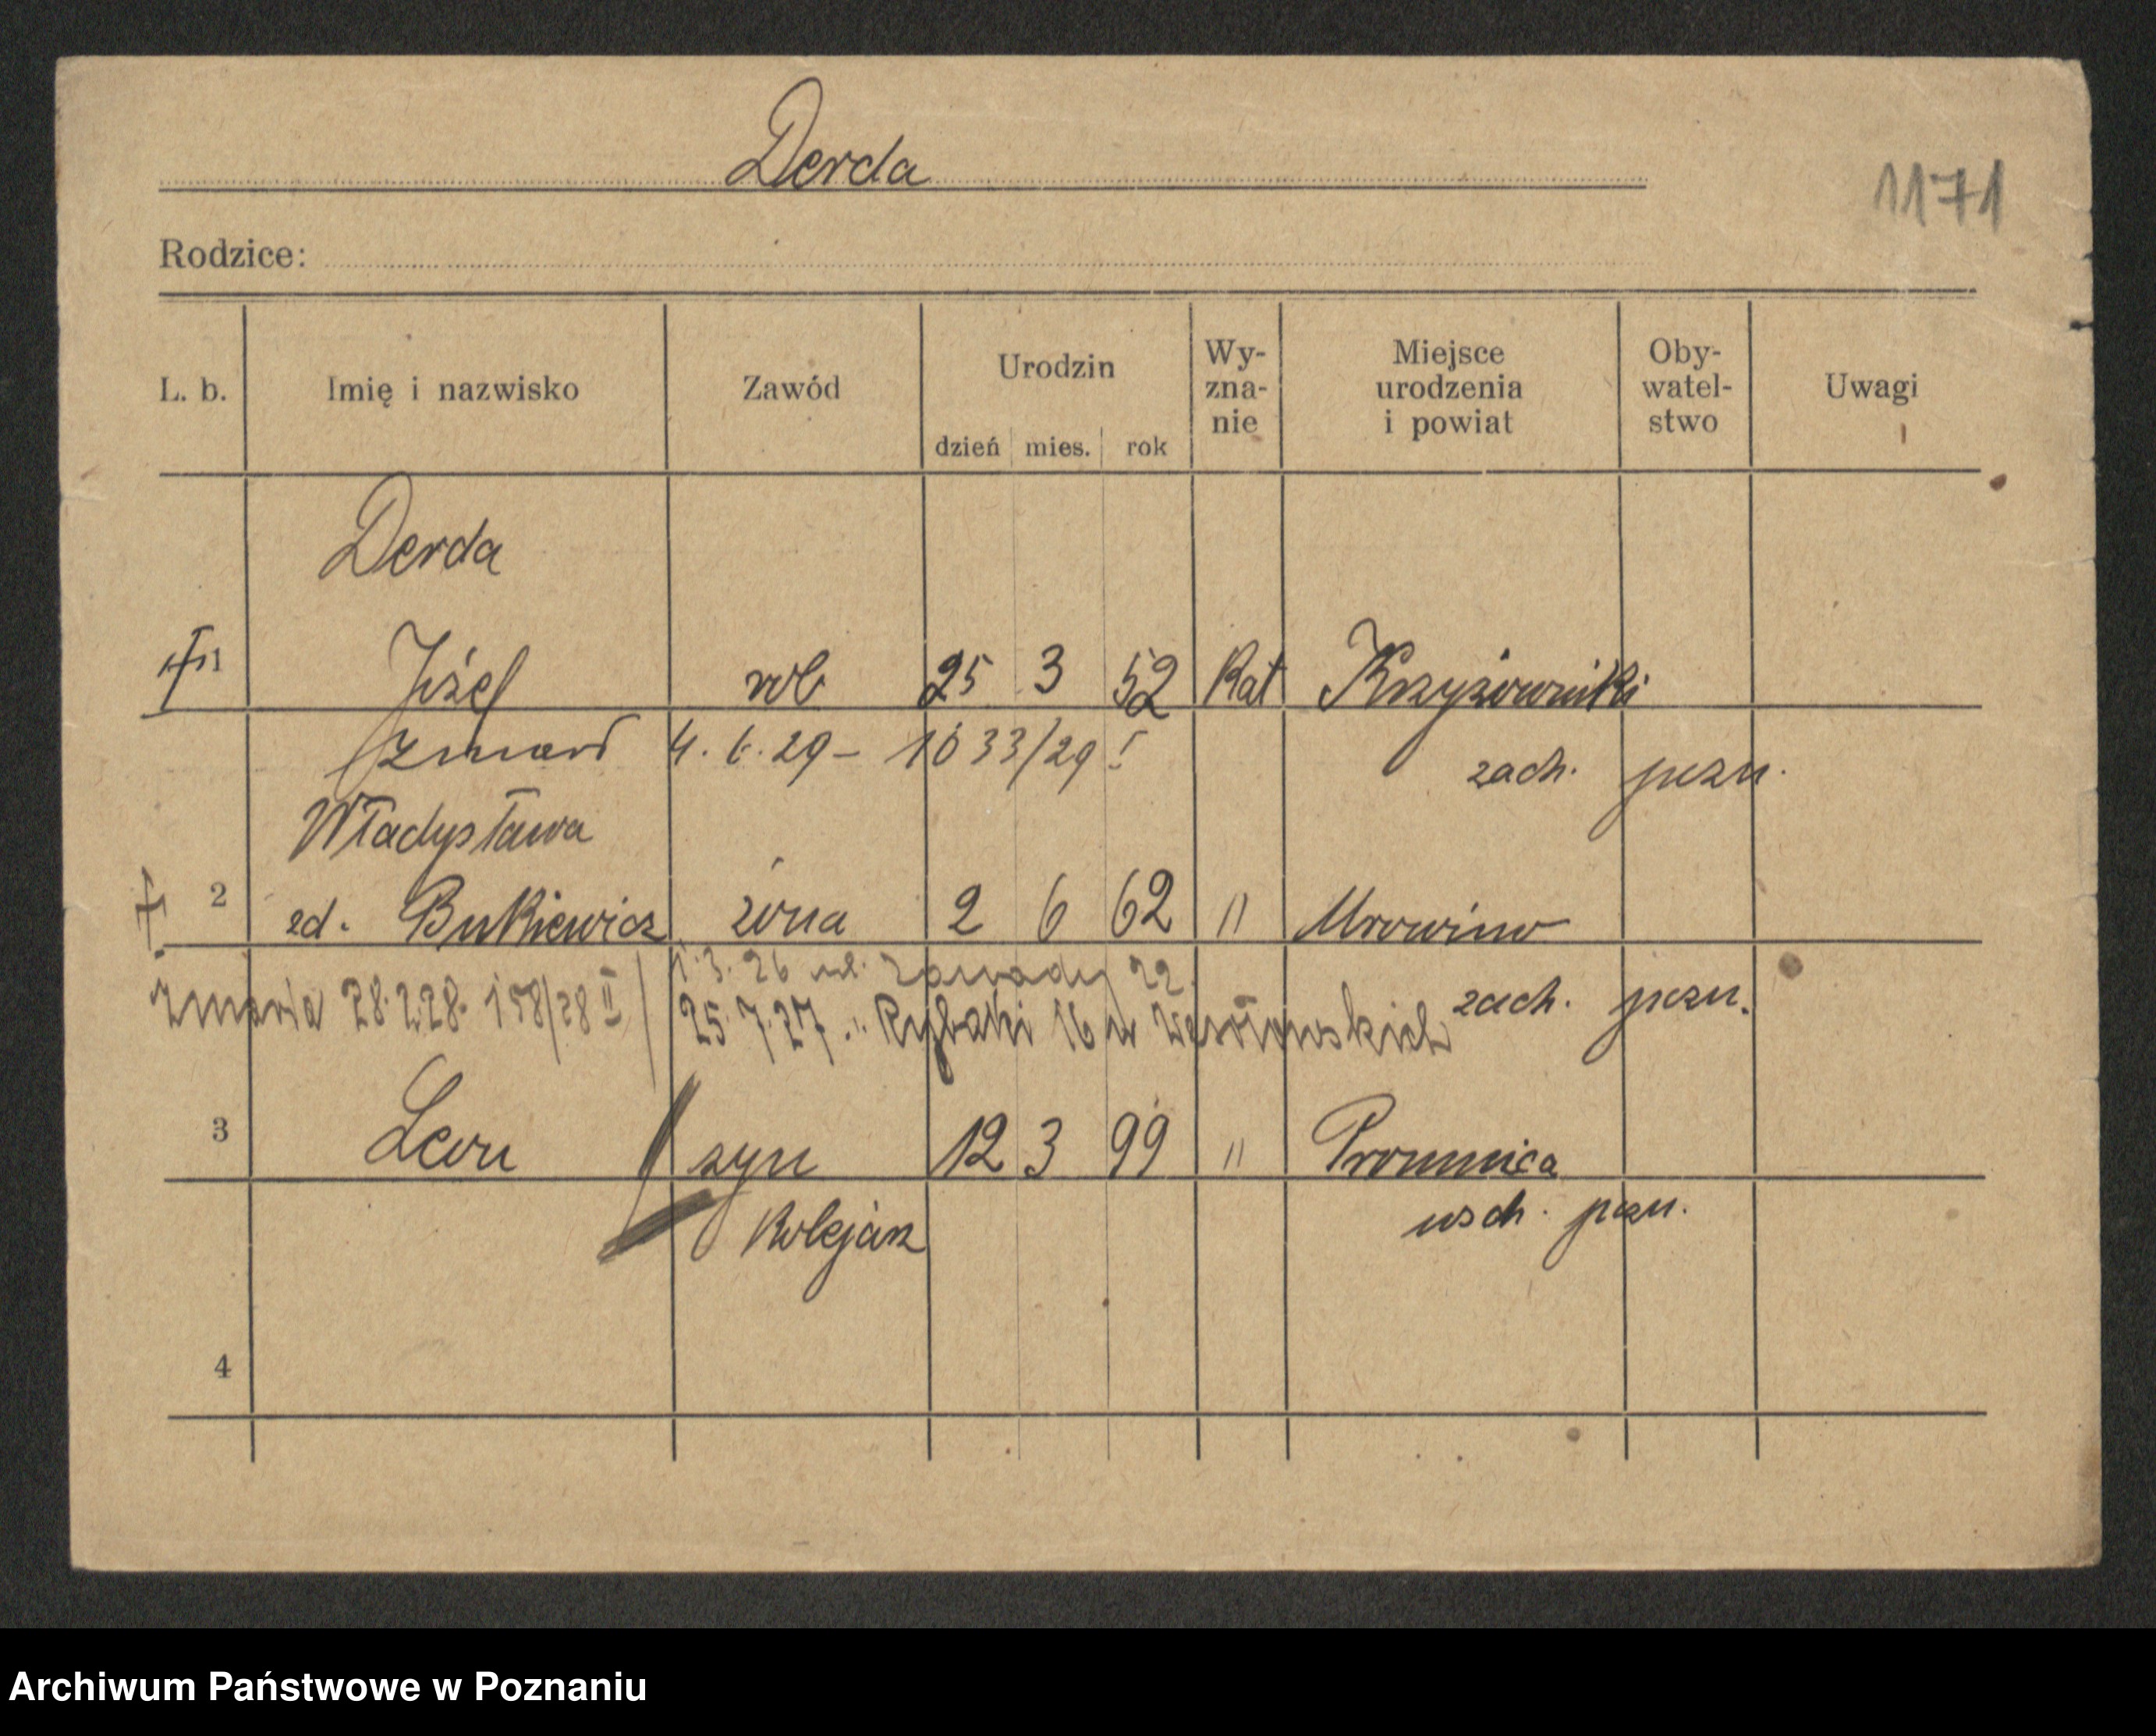 Derda
1171
Rodzice:
L. b. Imię i nazwisko Zawód Urodzin dzień mies. rok Wy-zna-nie Miejsce urodzenia i powiat Oby-watel-stwo Uwagi
Derda
1 Józef rob 25 3 52 Kat Krzyżowniki
zmarł 4. 6. 29 – 1033/29 I
zach. pozn.
Władysława
2 zd. Bukiewicz żona 2 6 62 " Mrowino
1.3.26 ul. Zawady 22.
zmarła 28.2.28. 158/28 II 25.7.27. " Rybaki 16 u Wesołowskich
zach. pozn.
3 Leon syn 12 3 99 " Promnica
kolejarz wsch. pozn.
4
Archiwum Państwowe w Poznaniu